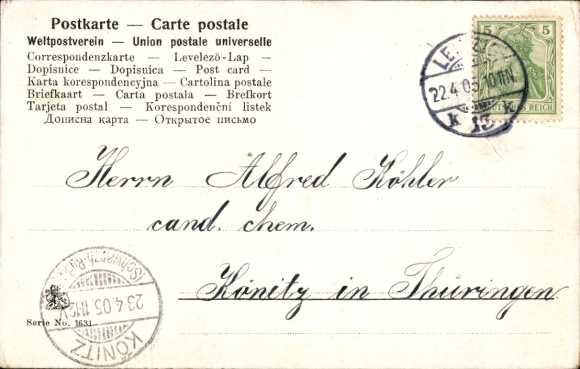 Postkarte — Carte postale
Weltpostverein — Union postale universelle
Correspondenzkarte — Levelezö-Lap —
Dopisnice — Dopisnica — Post card —
Karta korespondencyjna — Cartolina postale
Briefkaart — Carta postala — Brefkort
Tarjeta postal — Korespondenční listek
Дописна карта — Открытое письмо
5 5
22.4.05. 10-11N
DEUTSCHES REICH
k 13 k
Herrn Alfred Köhler
cand. chem.
Könitz in Thüringen.
23 4 05. 11-12V
KÖNITZ
Serie No. 1631